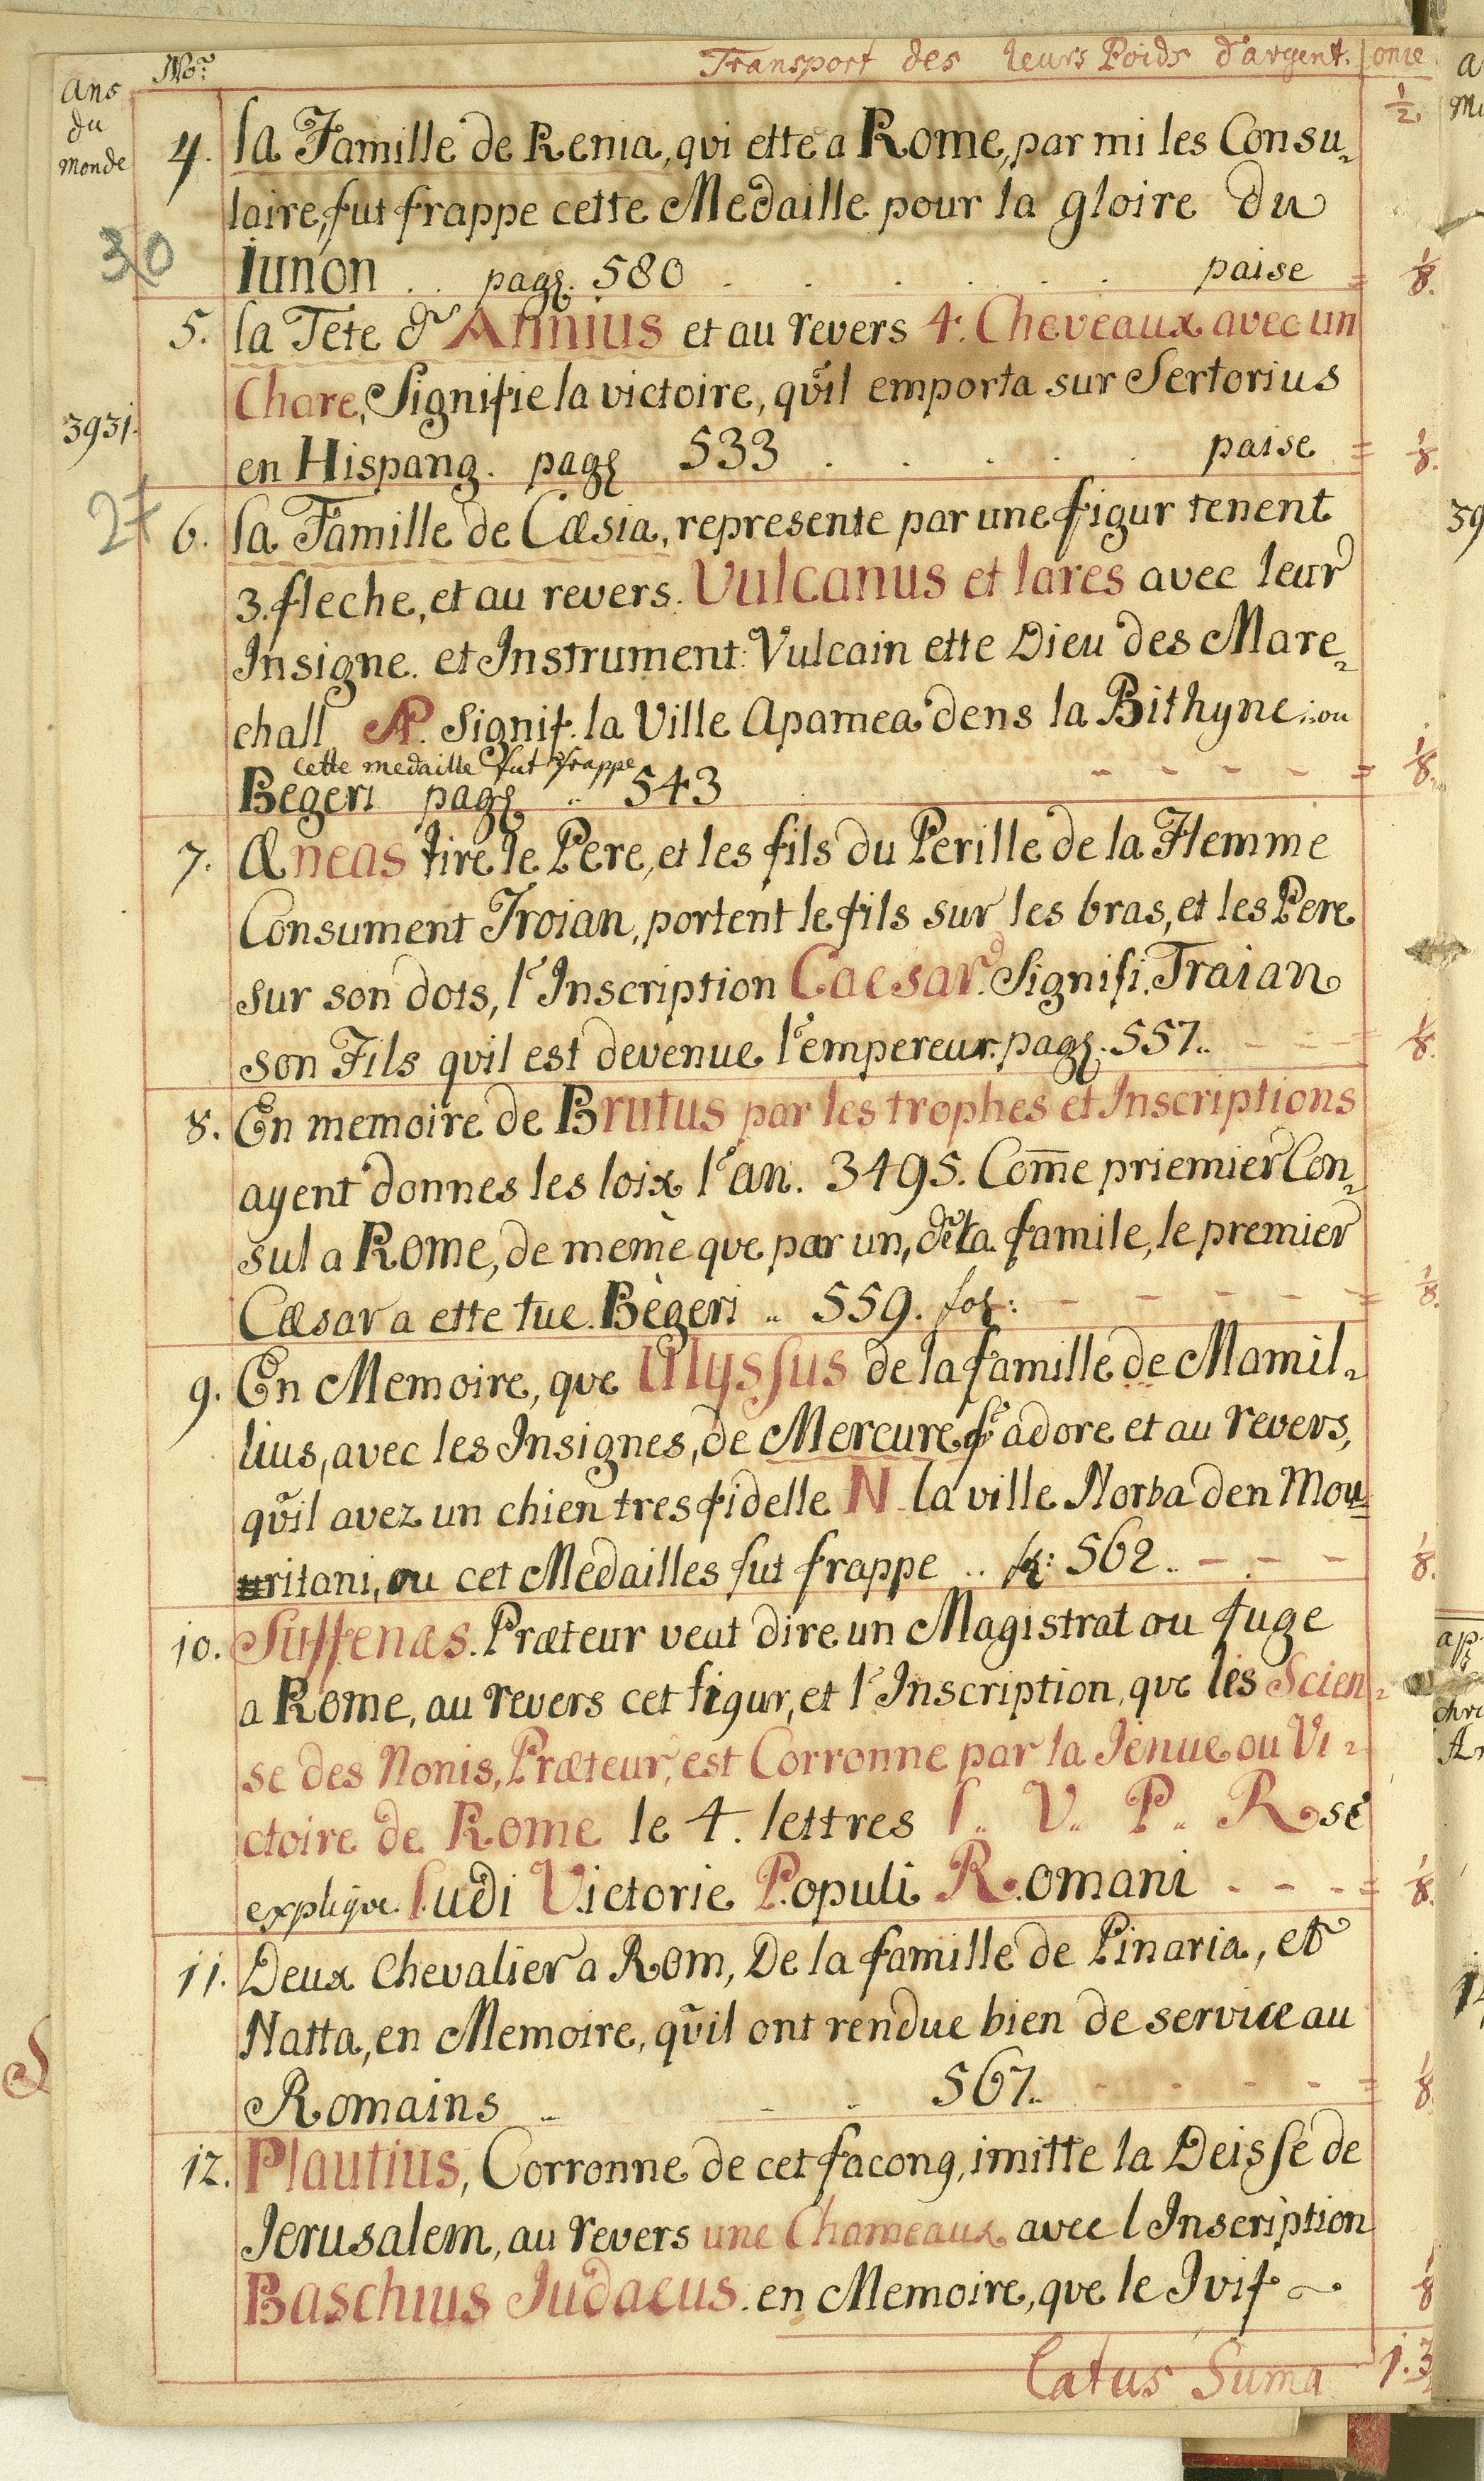 Transport des leurs Poids d'argent. onie
Ans du Monde
No.
1/2.
4. la Famille de Renia, qui ette a Rome, par mi les Consu„
laire, fut frappe cette Medaille pour la gloire du
30
Iunon .. pag. 580 . . . . . paise = 1/8.
5. la Tete d'Annius et au revers 4. Cheveaux avec un
Chare, Signifie la victoire, qu'il emporta sur Sertorius
3931.
en Hispang. pag 533 . . . . . paise = 1/8.
27
6. la Famille de Cæsia, represente par une figur tenent
3. fleche, et au revers. Vulcanus et lares avec leur
Insigne. et Instrument: Vulcain ette Dieu des Mare„
chall AP. Signif. la Ville Apamea dens la Bithyne :ou
cette medaille fut frappe
Begeri pag .. 543 - - - - - = 1/8.
7. Æneas tire le Pere, et les fils du Perille de la Flemme
Consument Troian, portent le fils sur les bras, et les Pere
sur son dots, l'Inscription Caesar. Signifi. Traian
son Fils qvil est devenue l'empereur. pag. 557.. - - - = 1/8.
8. En memoire de Brutus par les trophes et Inscriptions
ayent donnes les loix l'an. 3495. Com̄e priemier Con„
sul a Rome, de meme que par un, de ta famile, le premier
Cæsar a ette tue. Bègeri .. 559. fol: - - - - - = 1/8.
9. En Memoire, que Ulyssus de la famille de Mamil„
lius, avec les Insignes, de Mercure adore et au revers,
qu'il avez un chien tres fidelle N. la ville Norba den Mou„
ritani, ou cet Medailles fut frappe .. 562.. - - - 1/8.
10. Suffenas. Præteur veut dire un Magistrat ou fuge
a Rome, au revers cet figur, et l'Inscription, que les Scien„
se des Nonis, Præteur, est Corronne par la Jenue ou Vi„
ctoire de Rome le 4. lettres l.. V.. P.. R se
explique. ludi Victorie Populi Romani - - - = 1/8.
11. Deux Chevalier a Rom, De la famille de Pinaria, et
Natta, en Memoire, qu'il ont rendue bien de service au
Romains .. - .. 567.. - - - - - = 1/8
12. Plautius, Corronne de cet facong, imitte la Deisse de
Jerusalem, au revers une Chameaux avec l Inscription
Baschius Judaeus. en Memoire, que le Ivif 1/8
Latus Suma 1.3